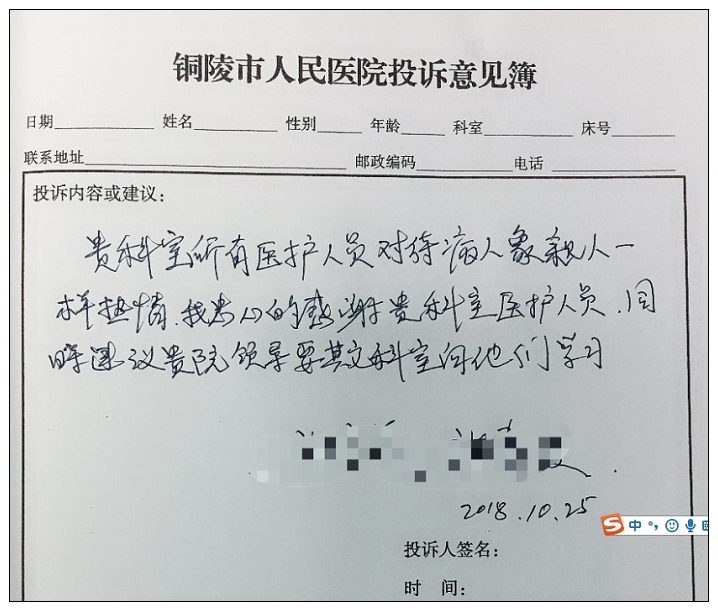 铜陵市人民医院投诉意见簿
日期 姓名 性别 年龄 科室 床号
联系地址 邮政编码 电话
投诉内容或建议：
贵科室所有医护人员对待病人象亲人一
样热情.我衷心的感谢贵科室医护人员.同
时建议贵院领导要其它科室向他们学习
2018.10.25
中
投诉人签名：
时 间：